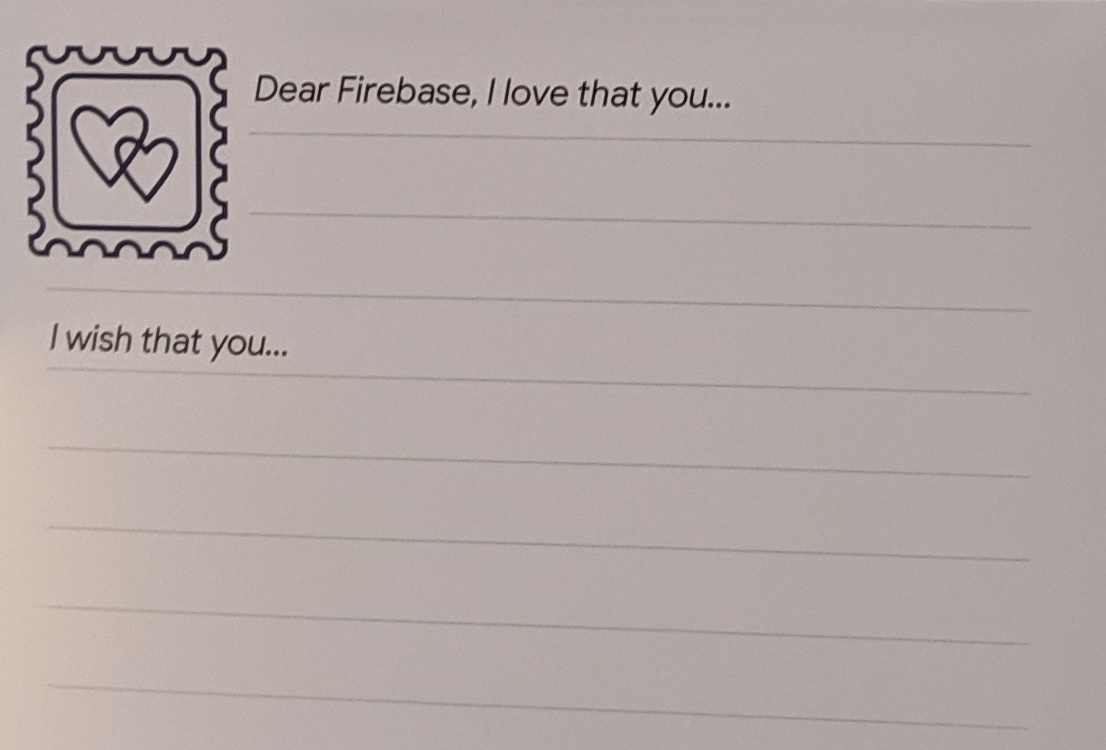 Dear Firebase, I love that you...
I wish that you...